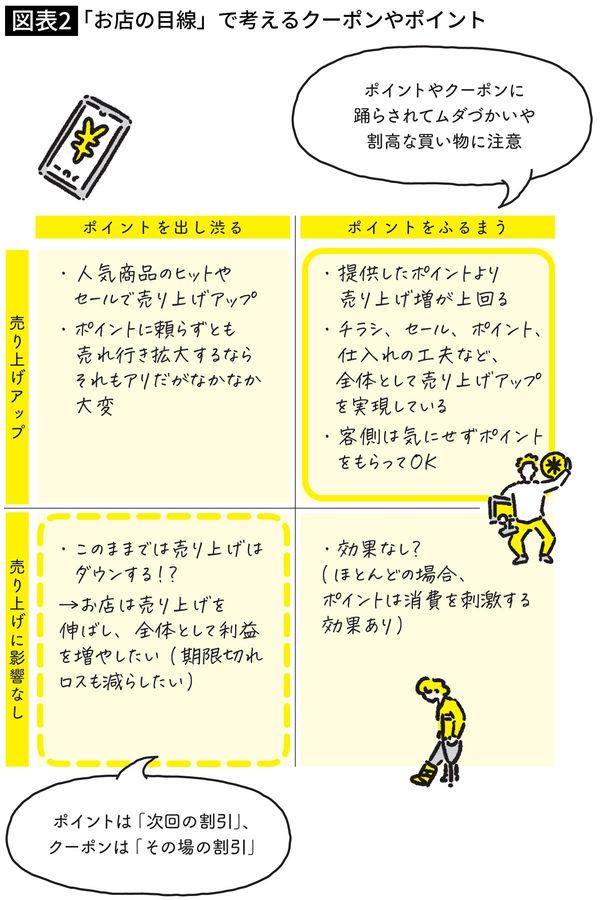 図表2 「お店の目線」で考えるクーポンやポイント
ポイントやクーポンに
踊らされてムダづかいや
割高な買い物に注意
¥
ポイントを出し渋る
ポイントをふるまう
売り上げアップ
・人気商品のヒットや
セールで売り上げアップ
・ポイントに頼らずとも
売れ行き拡大するなら
それもアリだがなかなか
大変
・提供したポイントより
売り上げ増が上回る
・チラシ、セール、ポイント、
仕入れの工夫など、
全体として売り上げアップ
を実現している
・客側は気にせずポイント
をもらってOK
売り上げに影響なし
・このままでは売り上げは
ダウンする!?
→お店は売り上げを
伸ばし、全体として利益
を増やしたい(期限切れ
ロスも減らしたい)
・効果なし?
(ほとんどの場合、
ポイントは消費を刺激する
効果あり)
ポイントは「次回の割引」、
クーポンは「その場の割引」